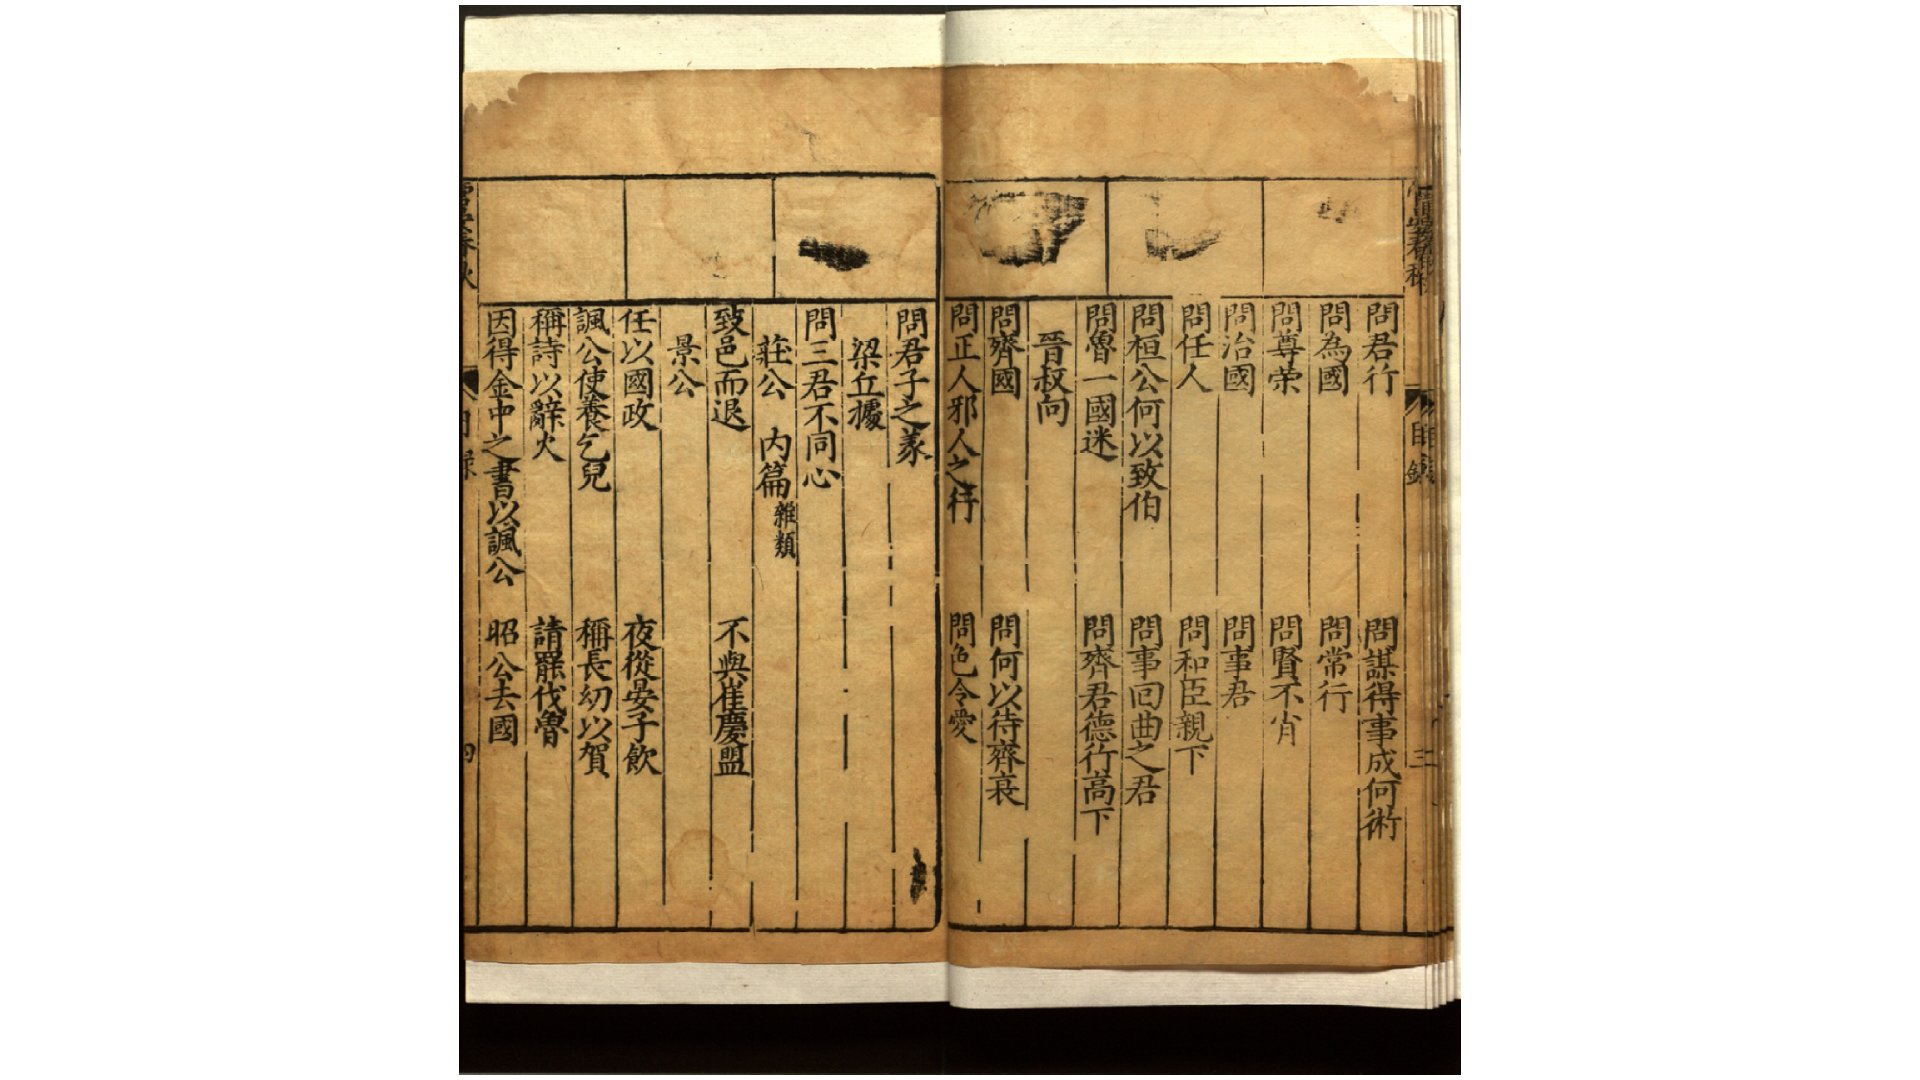 問君行 問謀得事成何術
問為國 問常行
問尊荣 問賢不肖
問治國 問事君
問任人 問和臣親下
問桓公何以致伯 問事回曲之君
問魯一國迷 問齊君德行高下
晉叔向
問齊國 問何以待齊衰
問正人邪人之行 問色令愛
問君子之彖
梁丘據
問三君不同心
莊公 内篇 雜類
致邑而退 不與崔慶盟
景公
任以國政 夜從晏子飲
諷公使養乞兒 稱長幼以賀
稱詩以辭火 請罷伐魯
因得金中之書以諷公 昭公去國
目錄
四